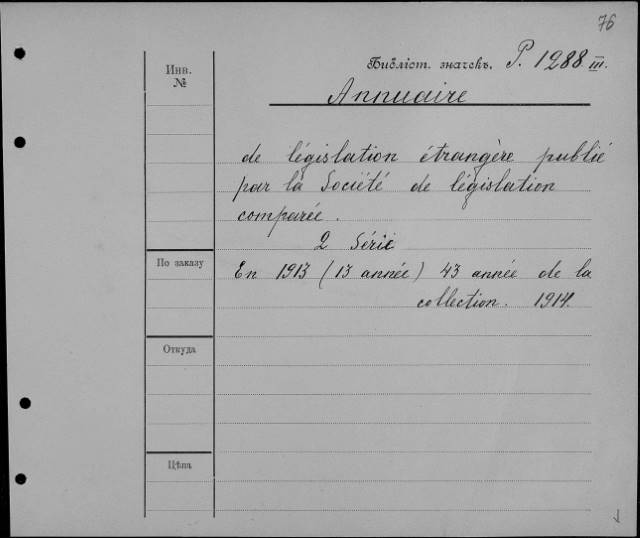 76
Инв.
№
Библіот. значекъ. P. 1288 III.
Annuaire
de législation étrangère publié
par la Société de législation
comparée.
2 Série
По заказу
En 1913 (13 année) 43 année de la
collection. 1914.
Откуда
Цѣна